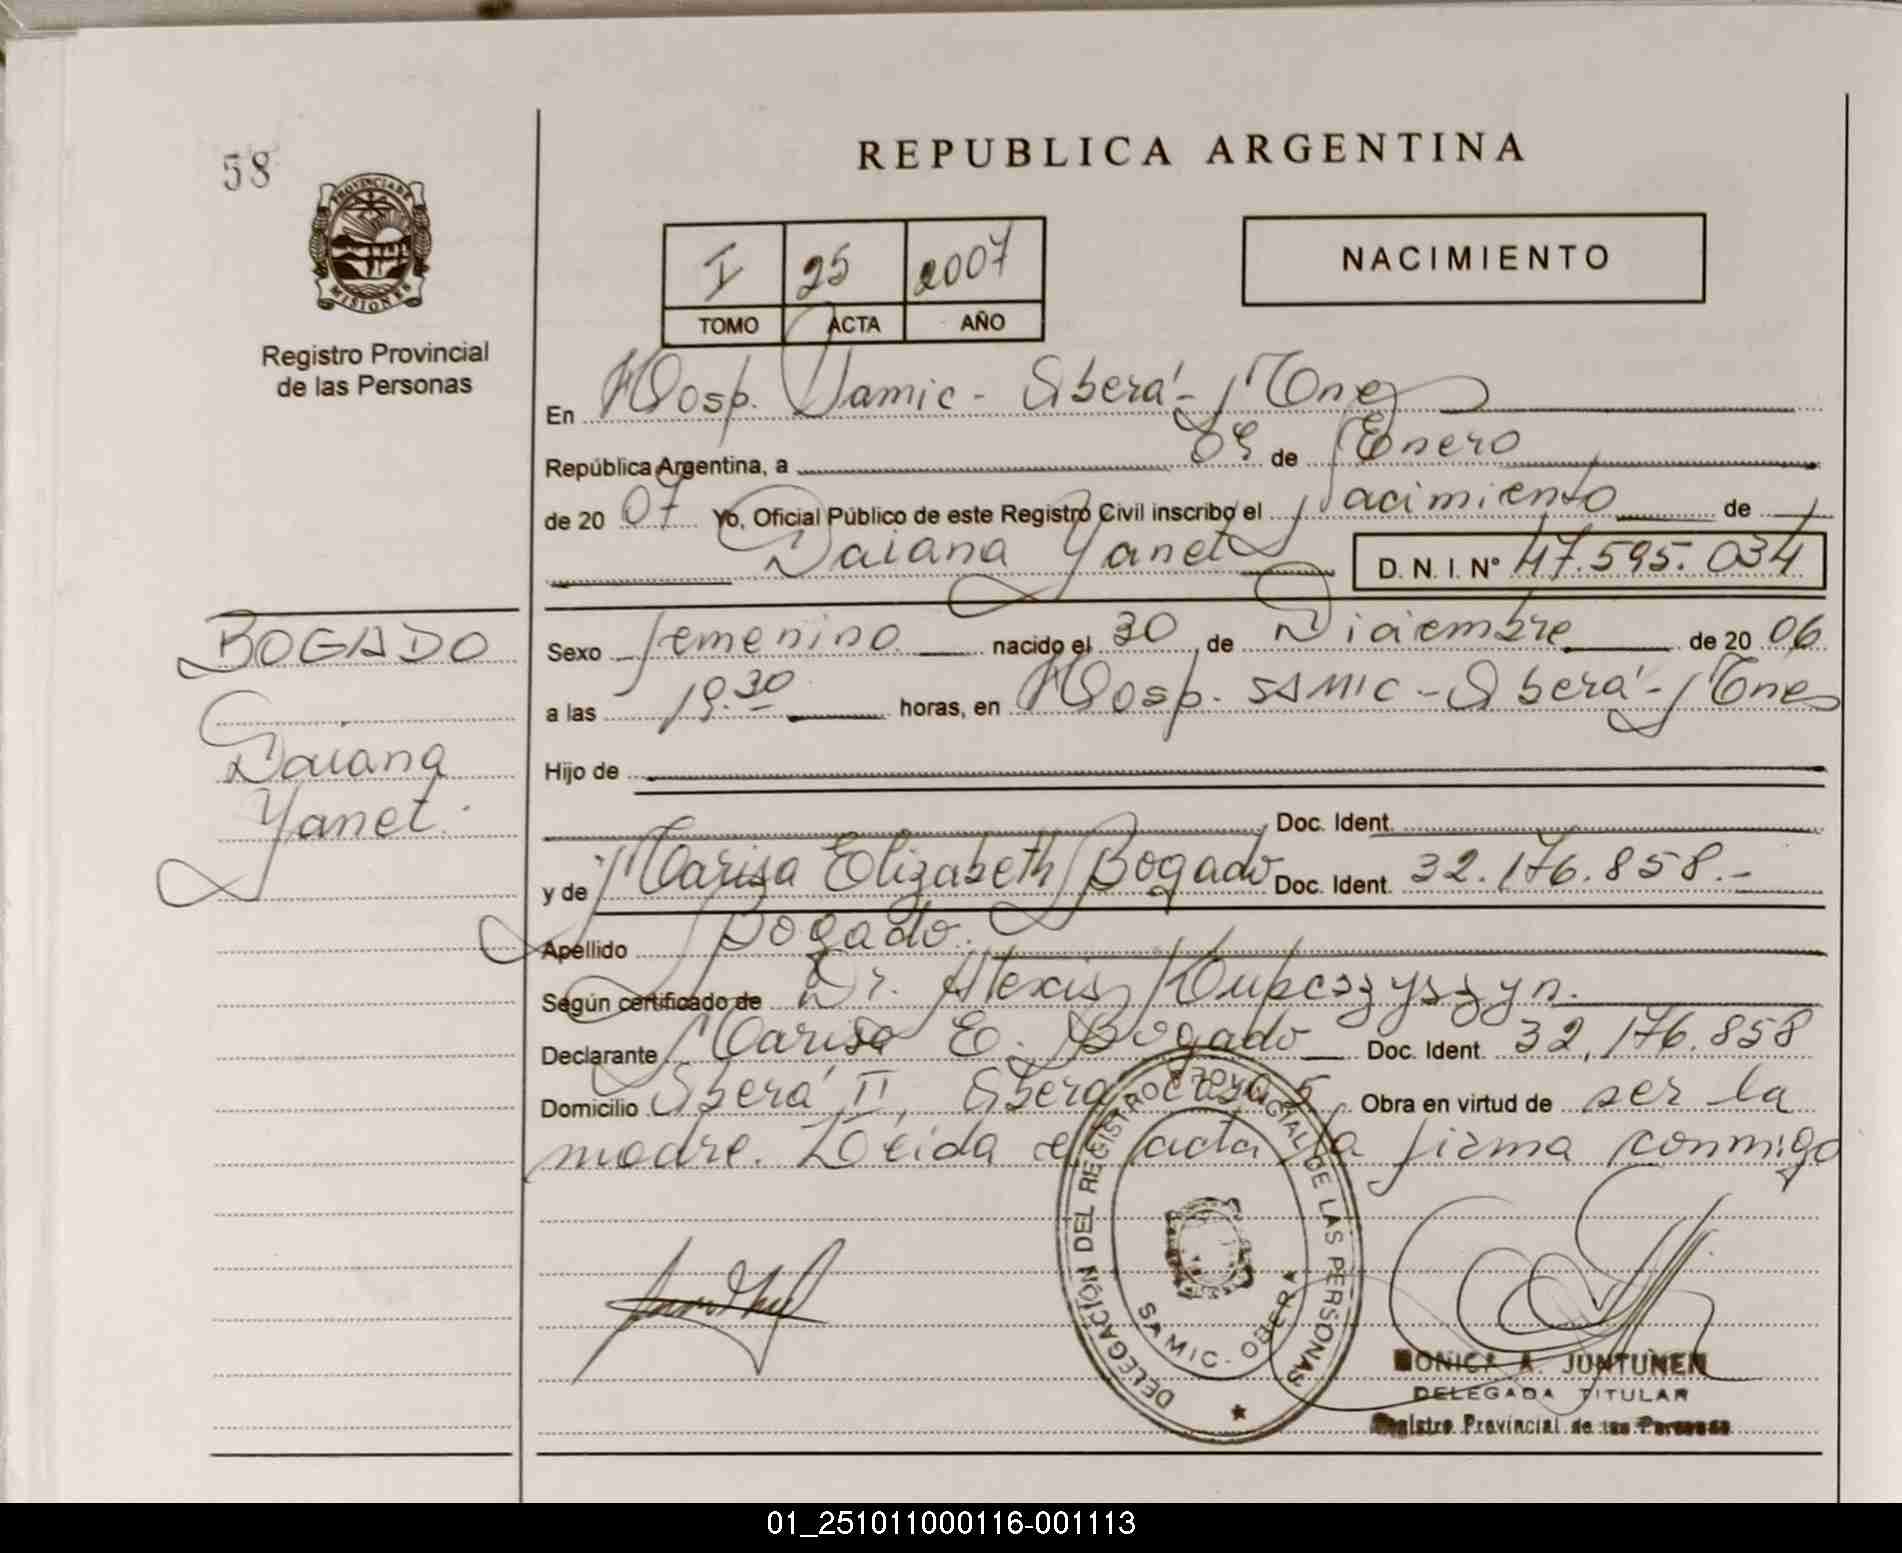 58
PROVINCIA DE MISIONES
Registro Provincial
de las Personas
REPUBLICA ARGENTINA
I 25 2007
TOMO ACTA AÑO
NACIMIENTO
En Hosp. Samic - Oberá - Mnes
República Argentina, a 09 de Enero
de 20 07 Yo, Oficial Público de este Registro Civil inscribo el Nacimiento de
Daiana Yanet D. N. I. N° 47.595.034
BOGADO
Daiana
Yanet.
Sexo femenino nacido el 30 de Diciembre de 20 06
a las 19.30 horas, en Hosp. SAMIC - Oberá - Mnes
Hijo de
Doc. Ident.
y de Marisa Elizabeth Bogado Doc. Ident. 32.176.858.-
Apellido Bogado.
Según certificado de Dr. Alexis Kubczyszyn.
Declarante Marisa E. Bogado Doc. Ident. 32.176.858
Domicilio Oberá II, Oberá casa 5 Obra en virtud de ser la
madre. Leída el acta la firma conmigo
DELEGACIÓN DEL REGISTRO PROVINCIAL DE LAS PERSONAS
SAMIC - OBERA
MONICA A. JUNTUNEN
DELEGADA TITULAR
Registro Provincial de las Personas
01_251011000116-001113